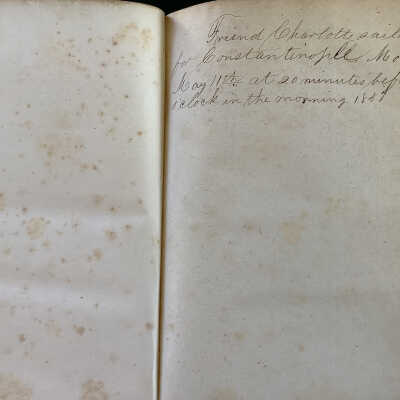 Friend Charlotte sail
for Constantinople Mo
May 11th at 20 minutes bef
o'clock in the morning 188